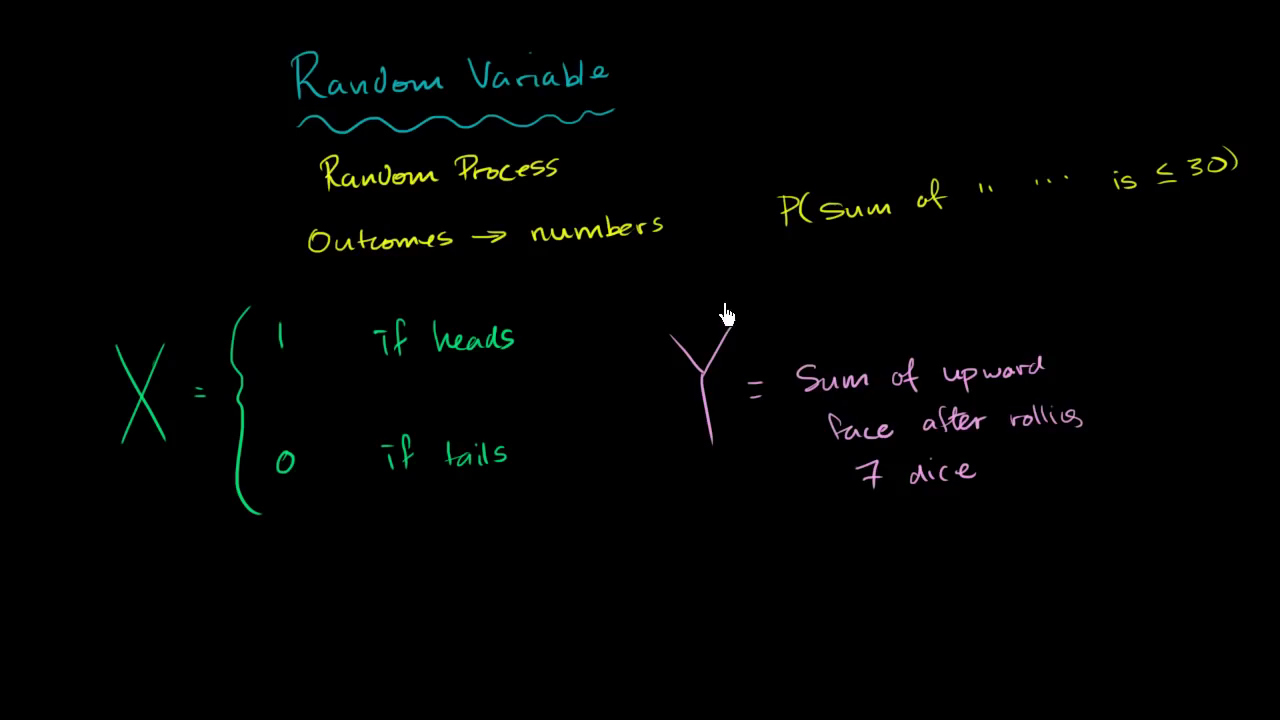 Random Variable
Random Process
P(Sum of " ... is ≤ 30)
Outcomes → numbers
X = { 1 if heads
0 if tails
Y = Sum of upward
face after rolling
7 dice